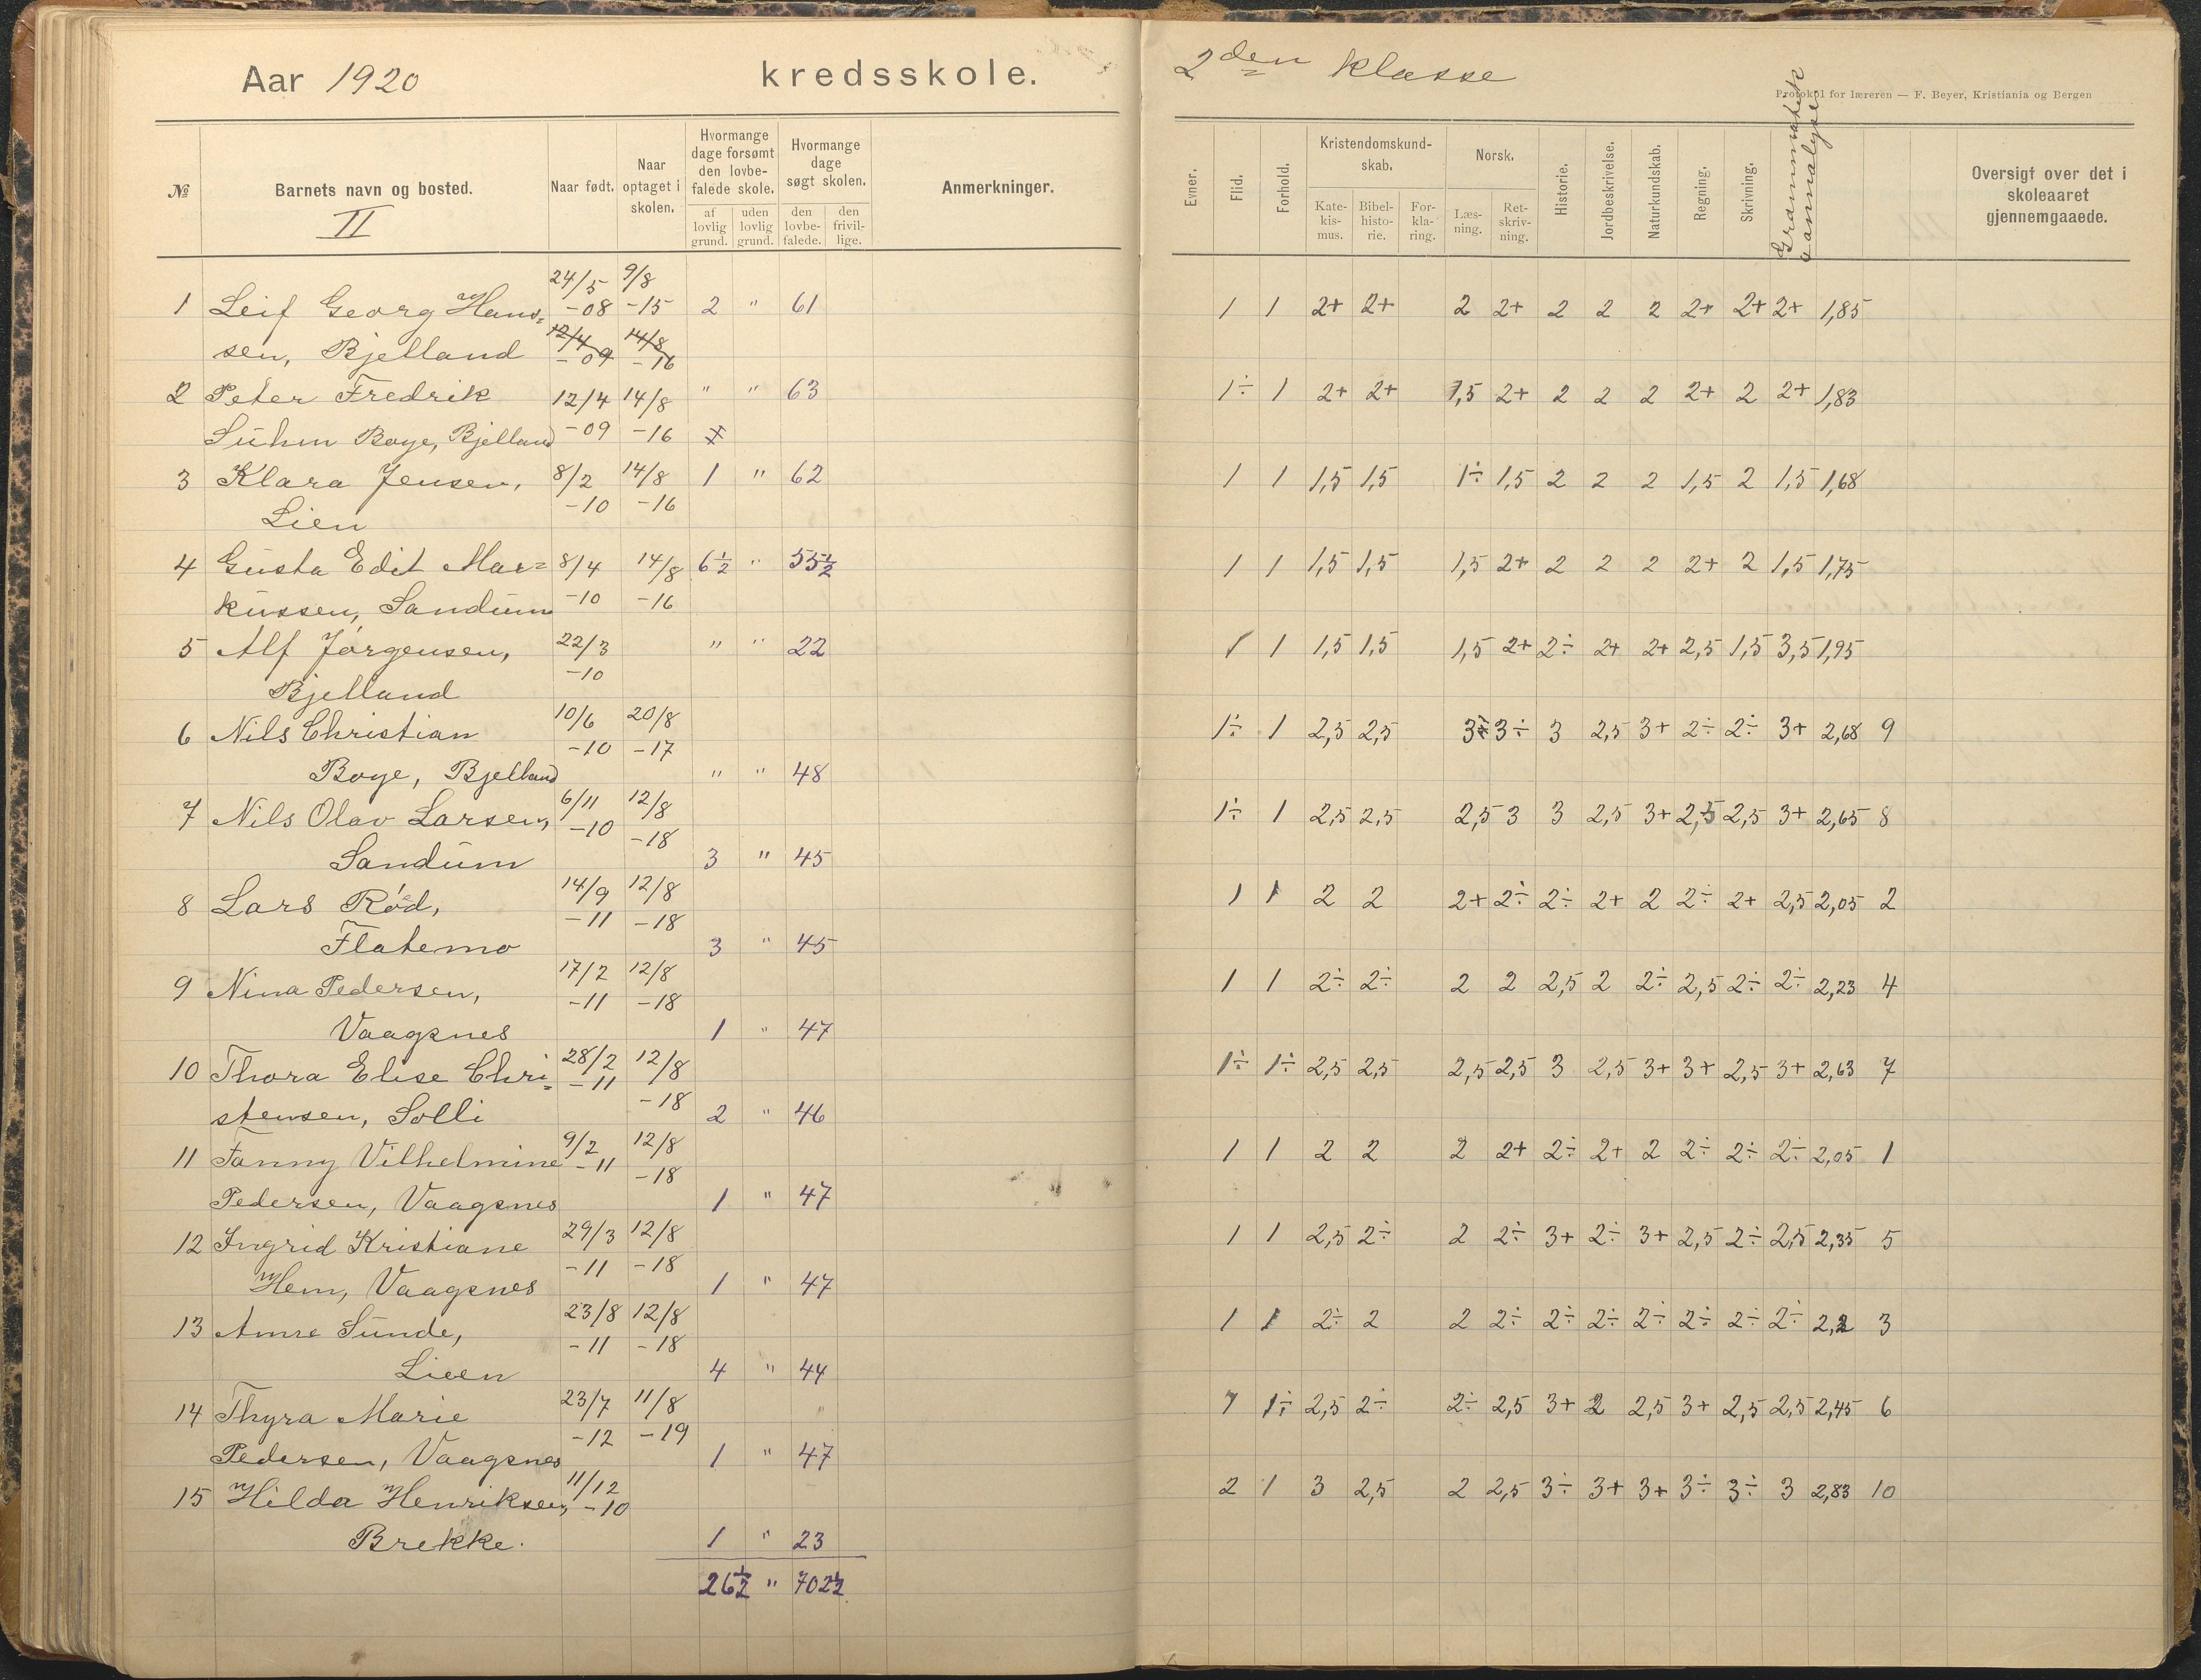 Aar 1920 kredsskole.
2den klasse
Protokol for læreren — F. Beyer, Kristiania og Bergen
№ Barnets navn og bosted. II Naar født. Naar optaget i skolen. Hvormange dage forsømt den lovbefalede skole. af lovlig grund. uden lovlig grund. Hvormange dage søgt skolen. den lovbefalede. den frivillige. Anmerkninger.
Evner. Flid. Forhold. Kristendomskundskab. Katekismus. Bibelhistorie. Forklaring. Norsk. Læsning. Retskrivning. Historie. Jordbeskrivelse. Naturkundskab. Regning. Skrivning. Grammatik Oversigt over det i skoleaaret gjennemgaaede.
1 Leif Georg Hans= 24/5 -08 9/8 -15 2 " 61 1 1 2+ 2+ 2 2+ 2 2 2 2+ 2+ 2+ 1,85
sen, Bjelland 12/4 -09 14/8 -16
2 Peter Fredrik 12/4 14/8 " " 63 1÷ 1 2+ 2+ 1,5 2+ 2 2 2 2+ 2 2+ 1,83
Suhm Boye, Bjelland -09 -16
3 Klara Jensen, 8/2 14/8 1 " 62 1 1 1,5 1,5 1÷ 1,5 2 2 2 1,5 2 1,5 1,68
Lien -10 -16
4 Gusta Edit Mar= 8/4 14/8 6½ " 55½ 1 1 1,5 1,5 1,5 2+ 2 2 2 2+ 2 1,5 1,75
kussen, Sandum -10 -16
5 Alf Jørgensen, 22/3 " " 22 1 1 1,5 1,5 1,5 2+ 2÷ 2+ 2+ 2,5 1,5 3,5 1,95
Bjelland -10
6 Nils Christian 10/6 -10 20/8 -17 1÷ 1 2,5 2,5 3÷ 3÷ 3 2,5 3+ 2÷ 2÷ 3+ 2,68 9
Boye, Bjelland " " 48
7 Nils Olav Larsen, 6/11 -10 12/8 -18 1÷ 1 2,5 2,5 2,5 3 3 2,5 3+ 2,5 2,5 3+ 2,65 8
Sandum 3 " 45
8 Lars Rød, 14/9 -11 12/8 -18 1 1 2 2 2+ 2÷ 2÷ 2+ 2 2÷ 2+ 2,5 2,05 2
Flatemo 3 " 45
9 Nina Pedersen, 17/2 -11 12/8 -18 1 1 2÷ 2÷ 2 2 2,5 2 2÷ 2,5 2÷ 2÷ 2,23 4
Vaagsnes 1 " 47
10 Thora Elise Chri= 28/2 -11 12/8 -18 1÷ 1÷ 2,5 2,5 2,5 2,5 3 2,5 3+ 3+ 2,5 3+ 2,63 7
stensen, Solli 2 " 46
11 Fanny Vilhelmine 9/2 -11 12/8 -18 1 1 2 2 2 2+ 2÷ 2+ 2 2÷ 2÷ 2÷ 2,05 1
Pedersen, Vaagsnes 1 " 47
12 Ingrid Kristiane 29/3 -11 12/8 -18 1 1 2,5 2÷ 2 2÷ 3+ 2÷ 3+ 2,5 2÷ 2,5 2,35 5
Hem, Vaagsnes 1 " 47
13 Sunde, 23/8 -11 12/8 -18 1 1 2÷ 2 2 2÷ 2÷ 2÷ 2÷ 2÷ 2÷ 2÷ 2,2 3
Lieen 4 " 44
14 Thyra Marie 23/7 -12 11/8 -19 1 1÷ 2,5 2÷ 2÷ 2,5 3+ 2 2,5 3+ 2,5 2,5 2,45 6
Pedersen, Vaagsnes 1 " 47
15 Hilda Henriksen, 11/12 -10 2 1 3 2,5 2 2,5 3÷ 3+ 3+ 3÷ 3÷ 3 2,83 10
Brekke. 1 " 23
26½ " 702½